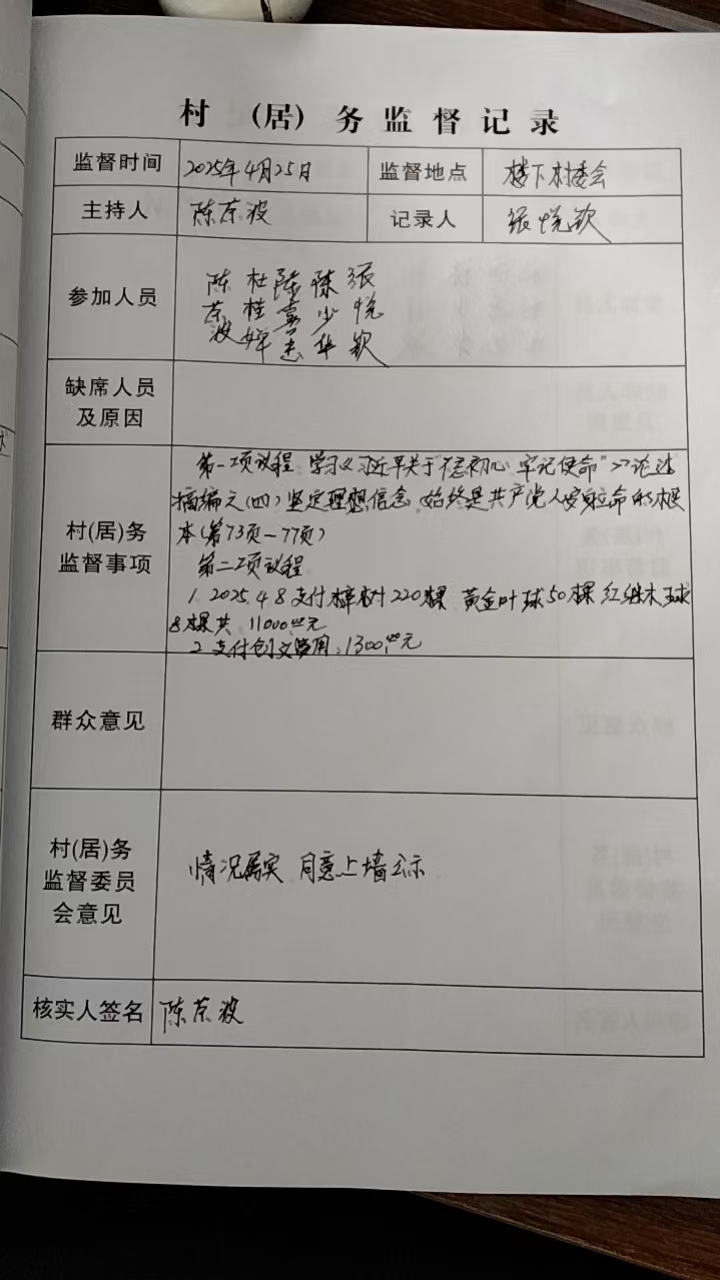 村（居）务监督记录
监督时间 2025年4月25日 监督地点 楼下村委会
主持人 陈荣波 记录人 张悦欽
参加人员 陈荣波 杜桂婵 陈嘉志 陈少华 张悦欽
缺席人员
及原因
村(居)务
监督事项
第一项议程 学习《习近平关于"不忘初心 牢记使命"》论述
摘编之(四)坚定理想信念 始终是共产党人安身立命的根
本(第73页-77页)
第二项议程
1. 2025.4.8支付樟树220棵 黄金叶球50棵 红继木球
8棵共 11000.00元
2 支付创文费用:1300.00元
群众意见
村(居)务
监督委员
会意见
情况属实 同意上墙公示
核实人签名 陈荣波